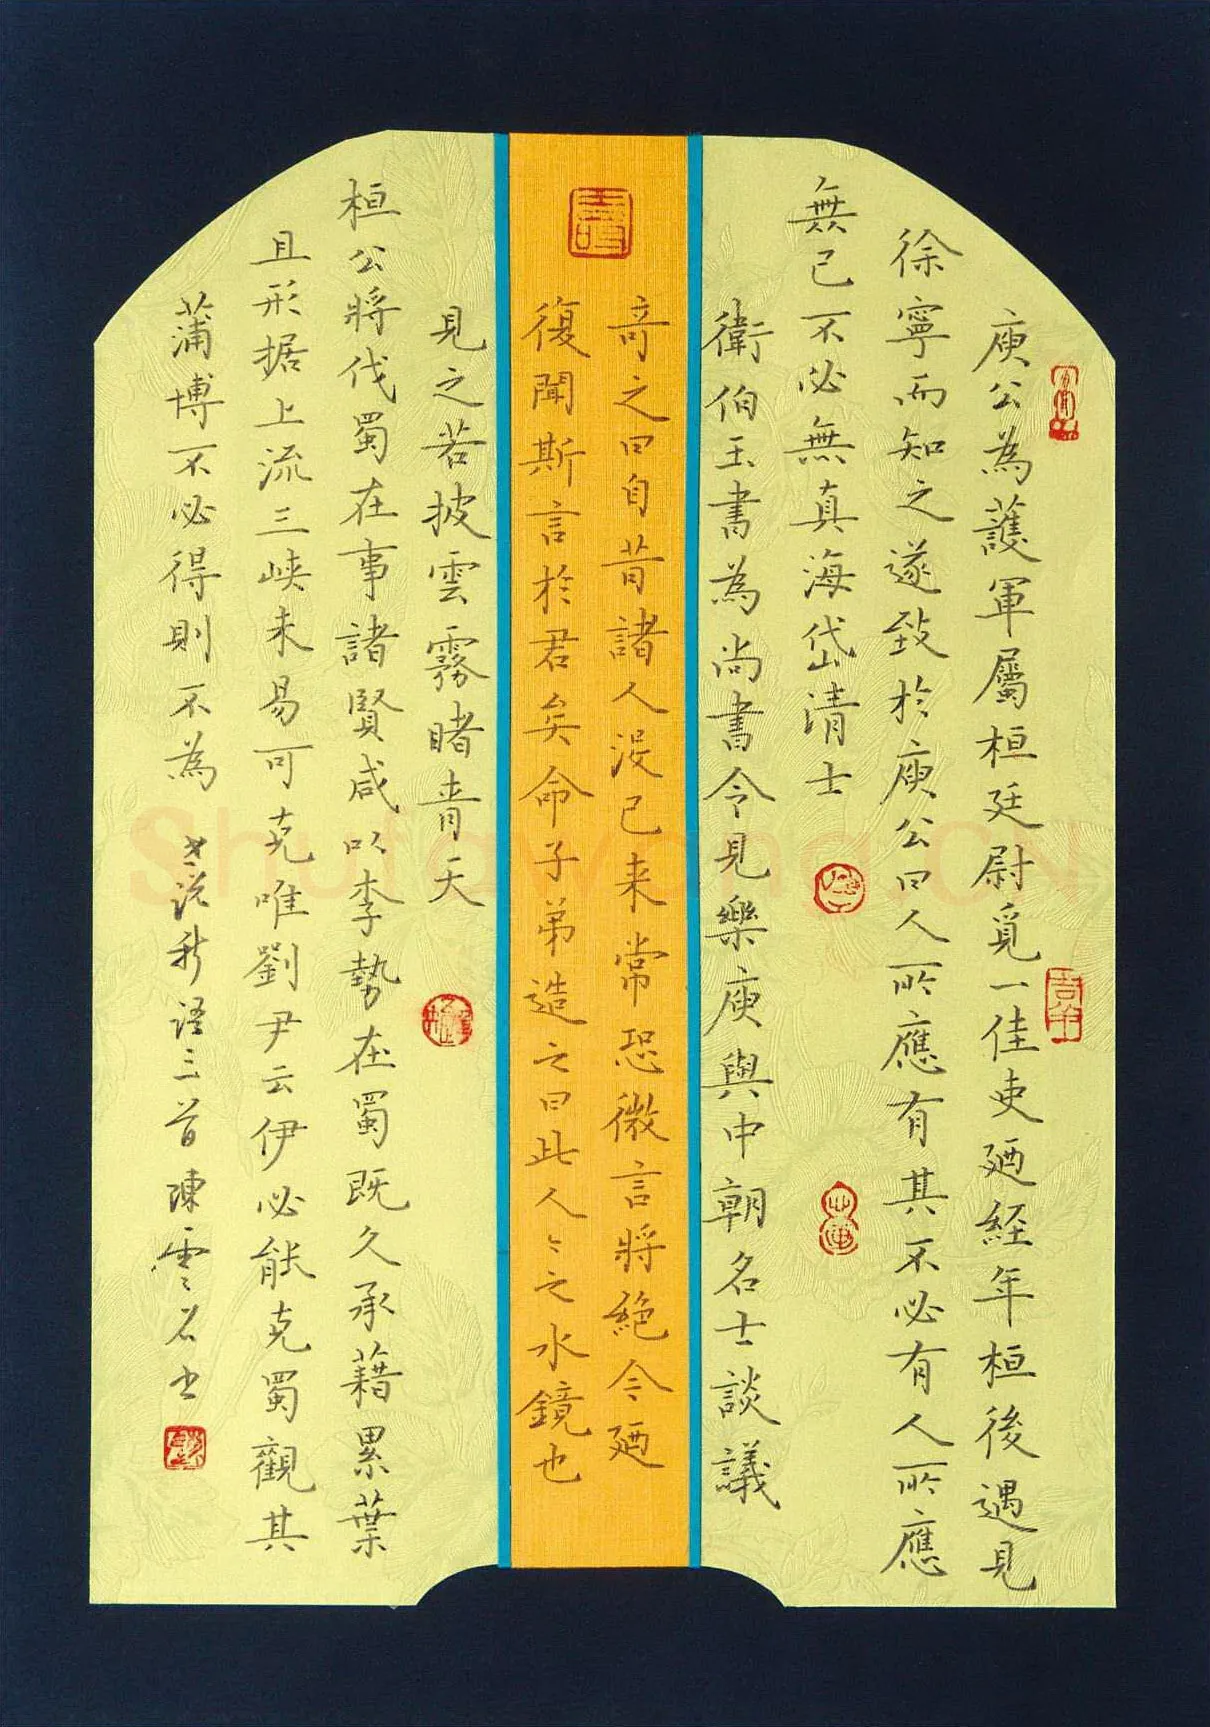 庾公為護軍屬桓廷尉覓一佳吏廼経年桓後遇見
徐寧而知之遂致於庾公曰人所應有其不必有人所應
無己不必無真海岱清士
衛伯玉書為尚書令見樂庾與中朝名士談議
奇之曰自昔諸人没已来常恐微言将絕今廼
復聞斯言於君矣命子弟造之曰此人人之水鏡也
見之若披雲霧睹青天
桓公將伐蜀在事諸賢咸以李勢在蜀既久承藉累葉
且形据上流三峡未易可克唯劉尹云伊必能克蜀觀其
蒲博不必得則不為
世说新语三首陳雲名书
Shufawang.CN